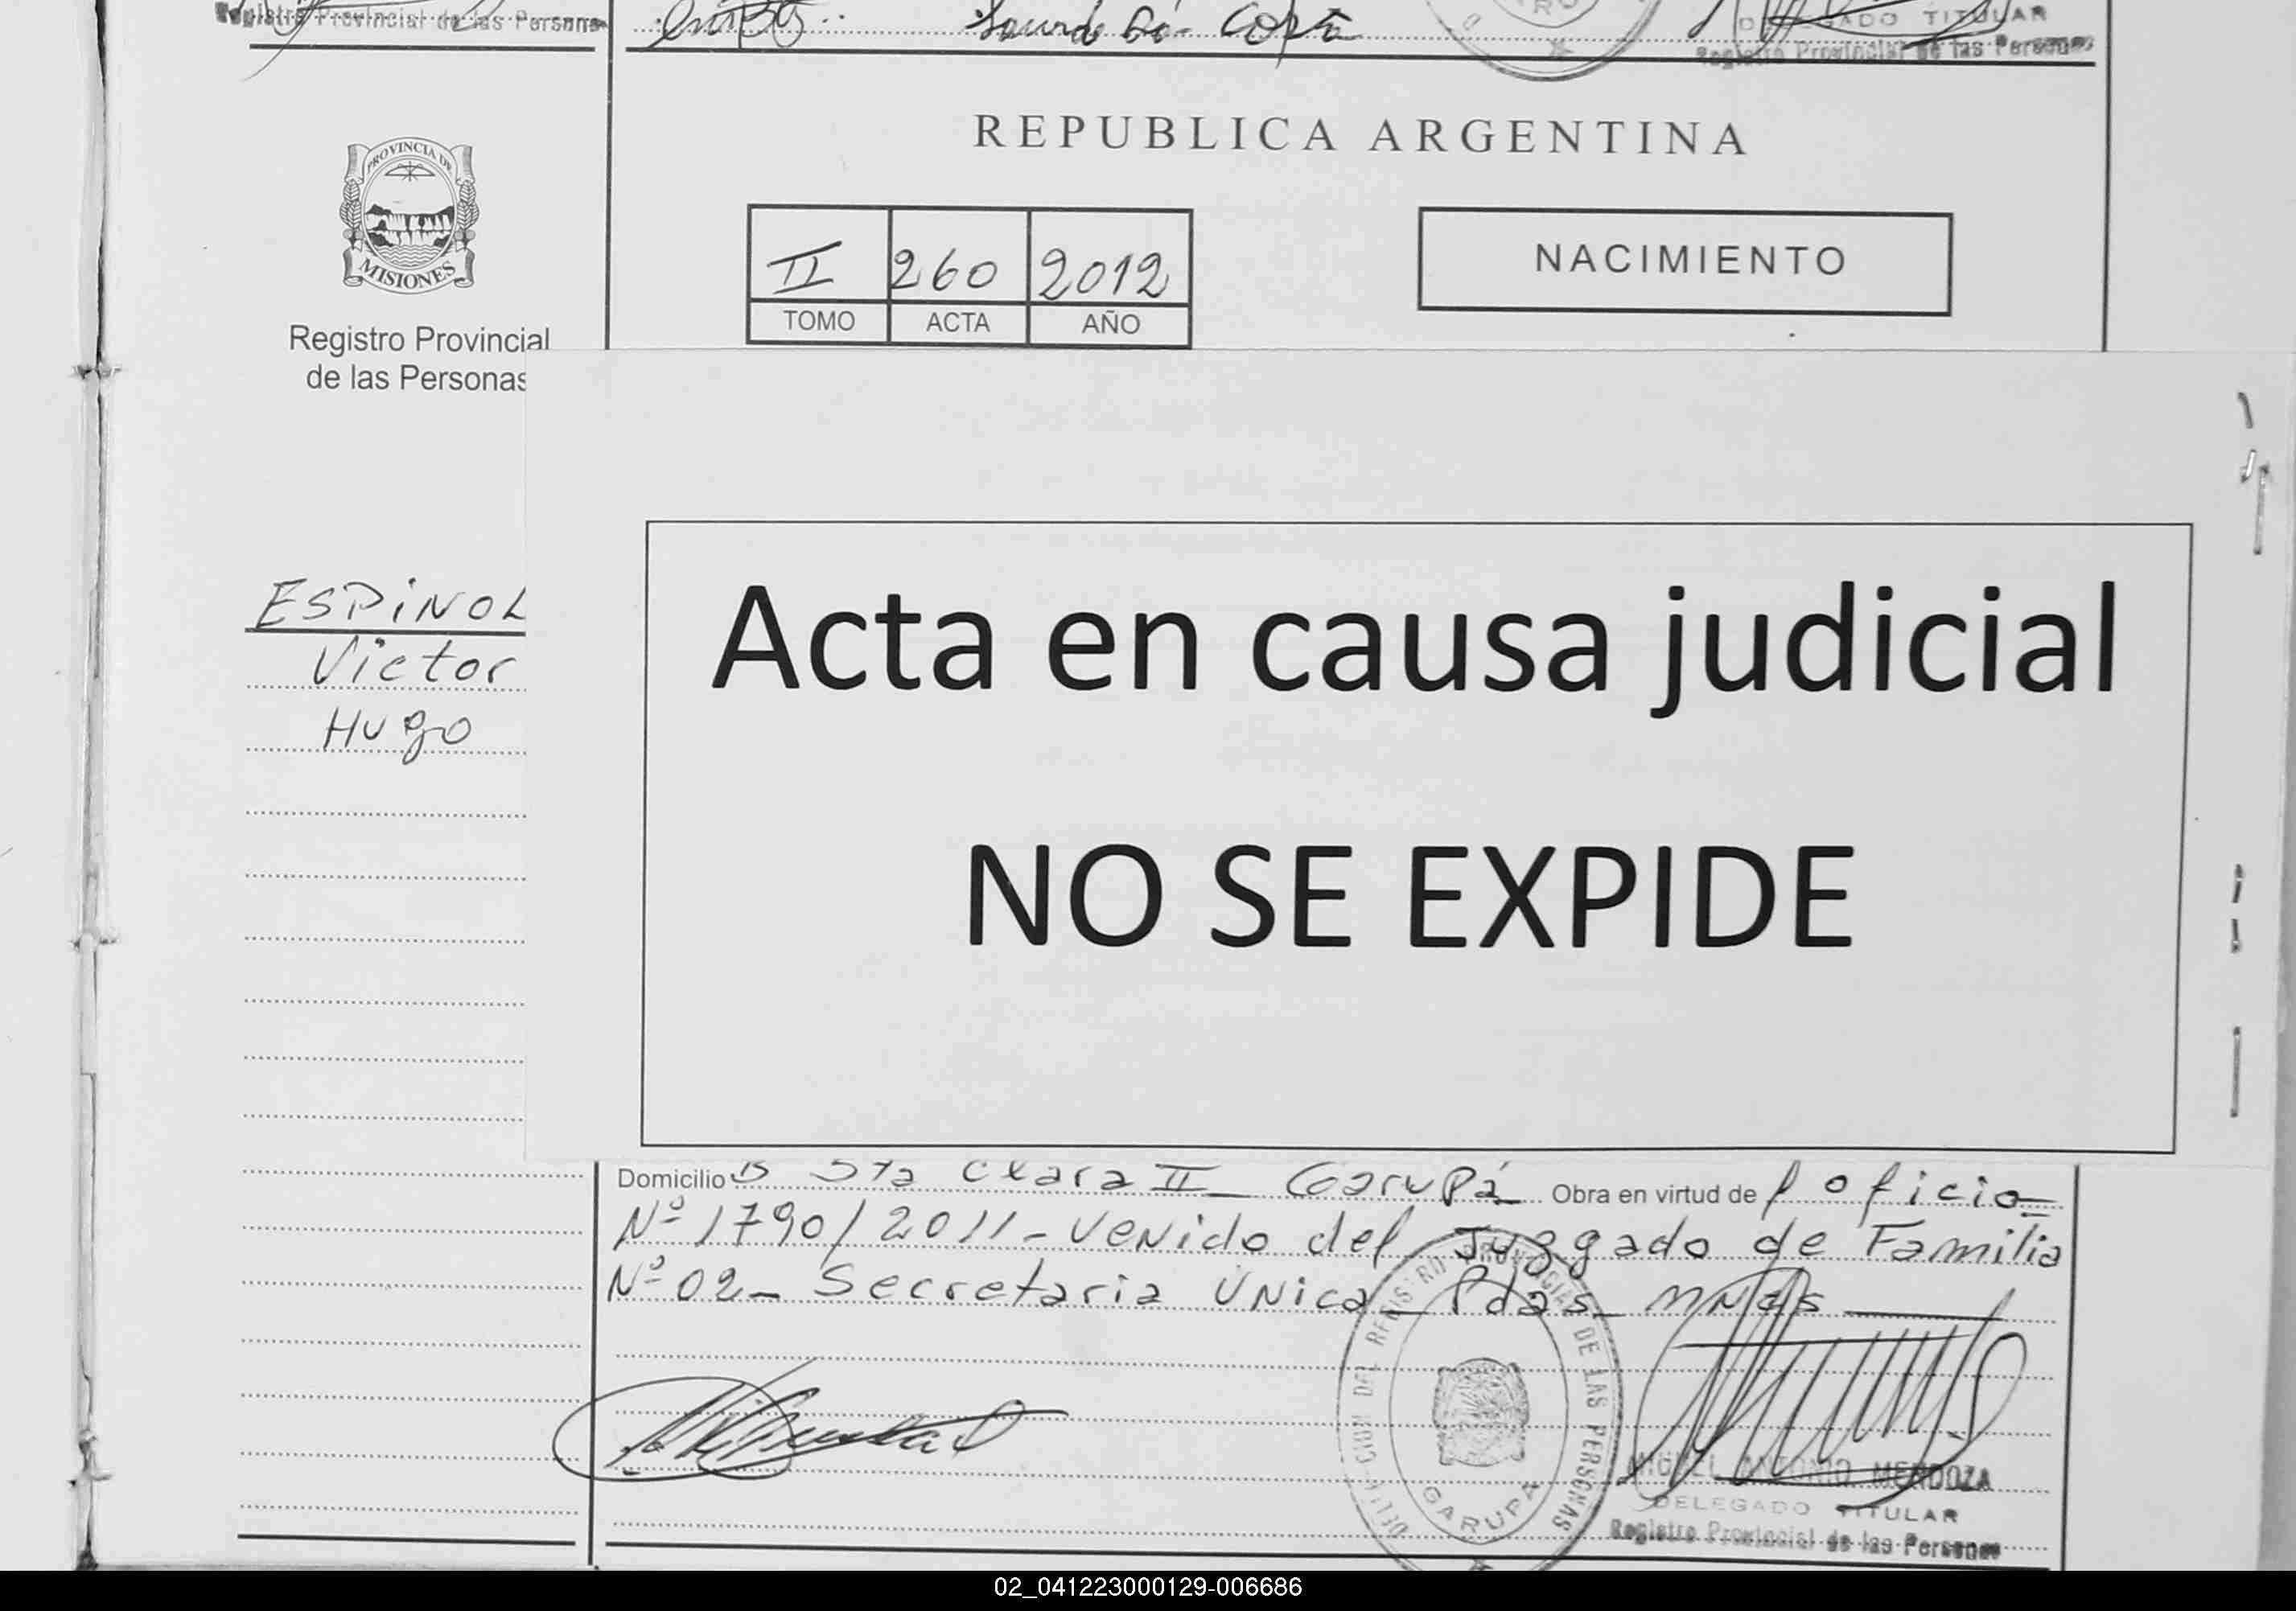 Registro Provincial de las Persona
DELEGADO TITULAR
Registro Provincial de las Personas
REPUBLICA ARGENTINA
PROVINCIA DE
MISIONES
II 260 2012
TOMO ACTA AÑO
NACIMIENTO
Registro Provincial
de las Personas
ESPINOL
Victor
Hugo
Acta en causa judicial
NO SE EXPIDE
Domicilio B Sta Clara II Garupá Obra en virtud de oficio
Nº 1790/2011 - Venido del Juzgado de Familia
Nº 02 - Secretaria Unica Pdas Mnes
REGISTRO PROVINCIAL DE LAS PERSONAS
GARUPA
MIGUEL ANTONIO MENDOZA
DELEGADO TITULAR
Registro Provincial de las Personas
02_041223000129-006686